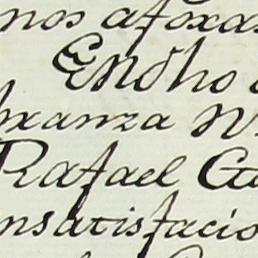 nos afoxas
En dho
branza N
Rafael Gu
nsatisfacio